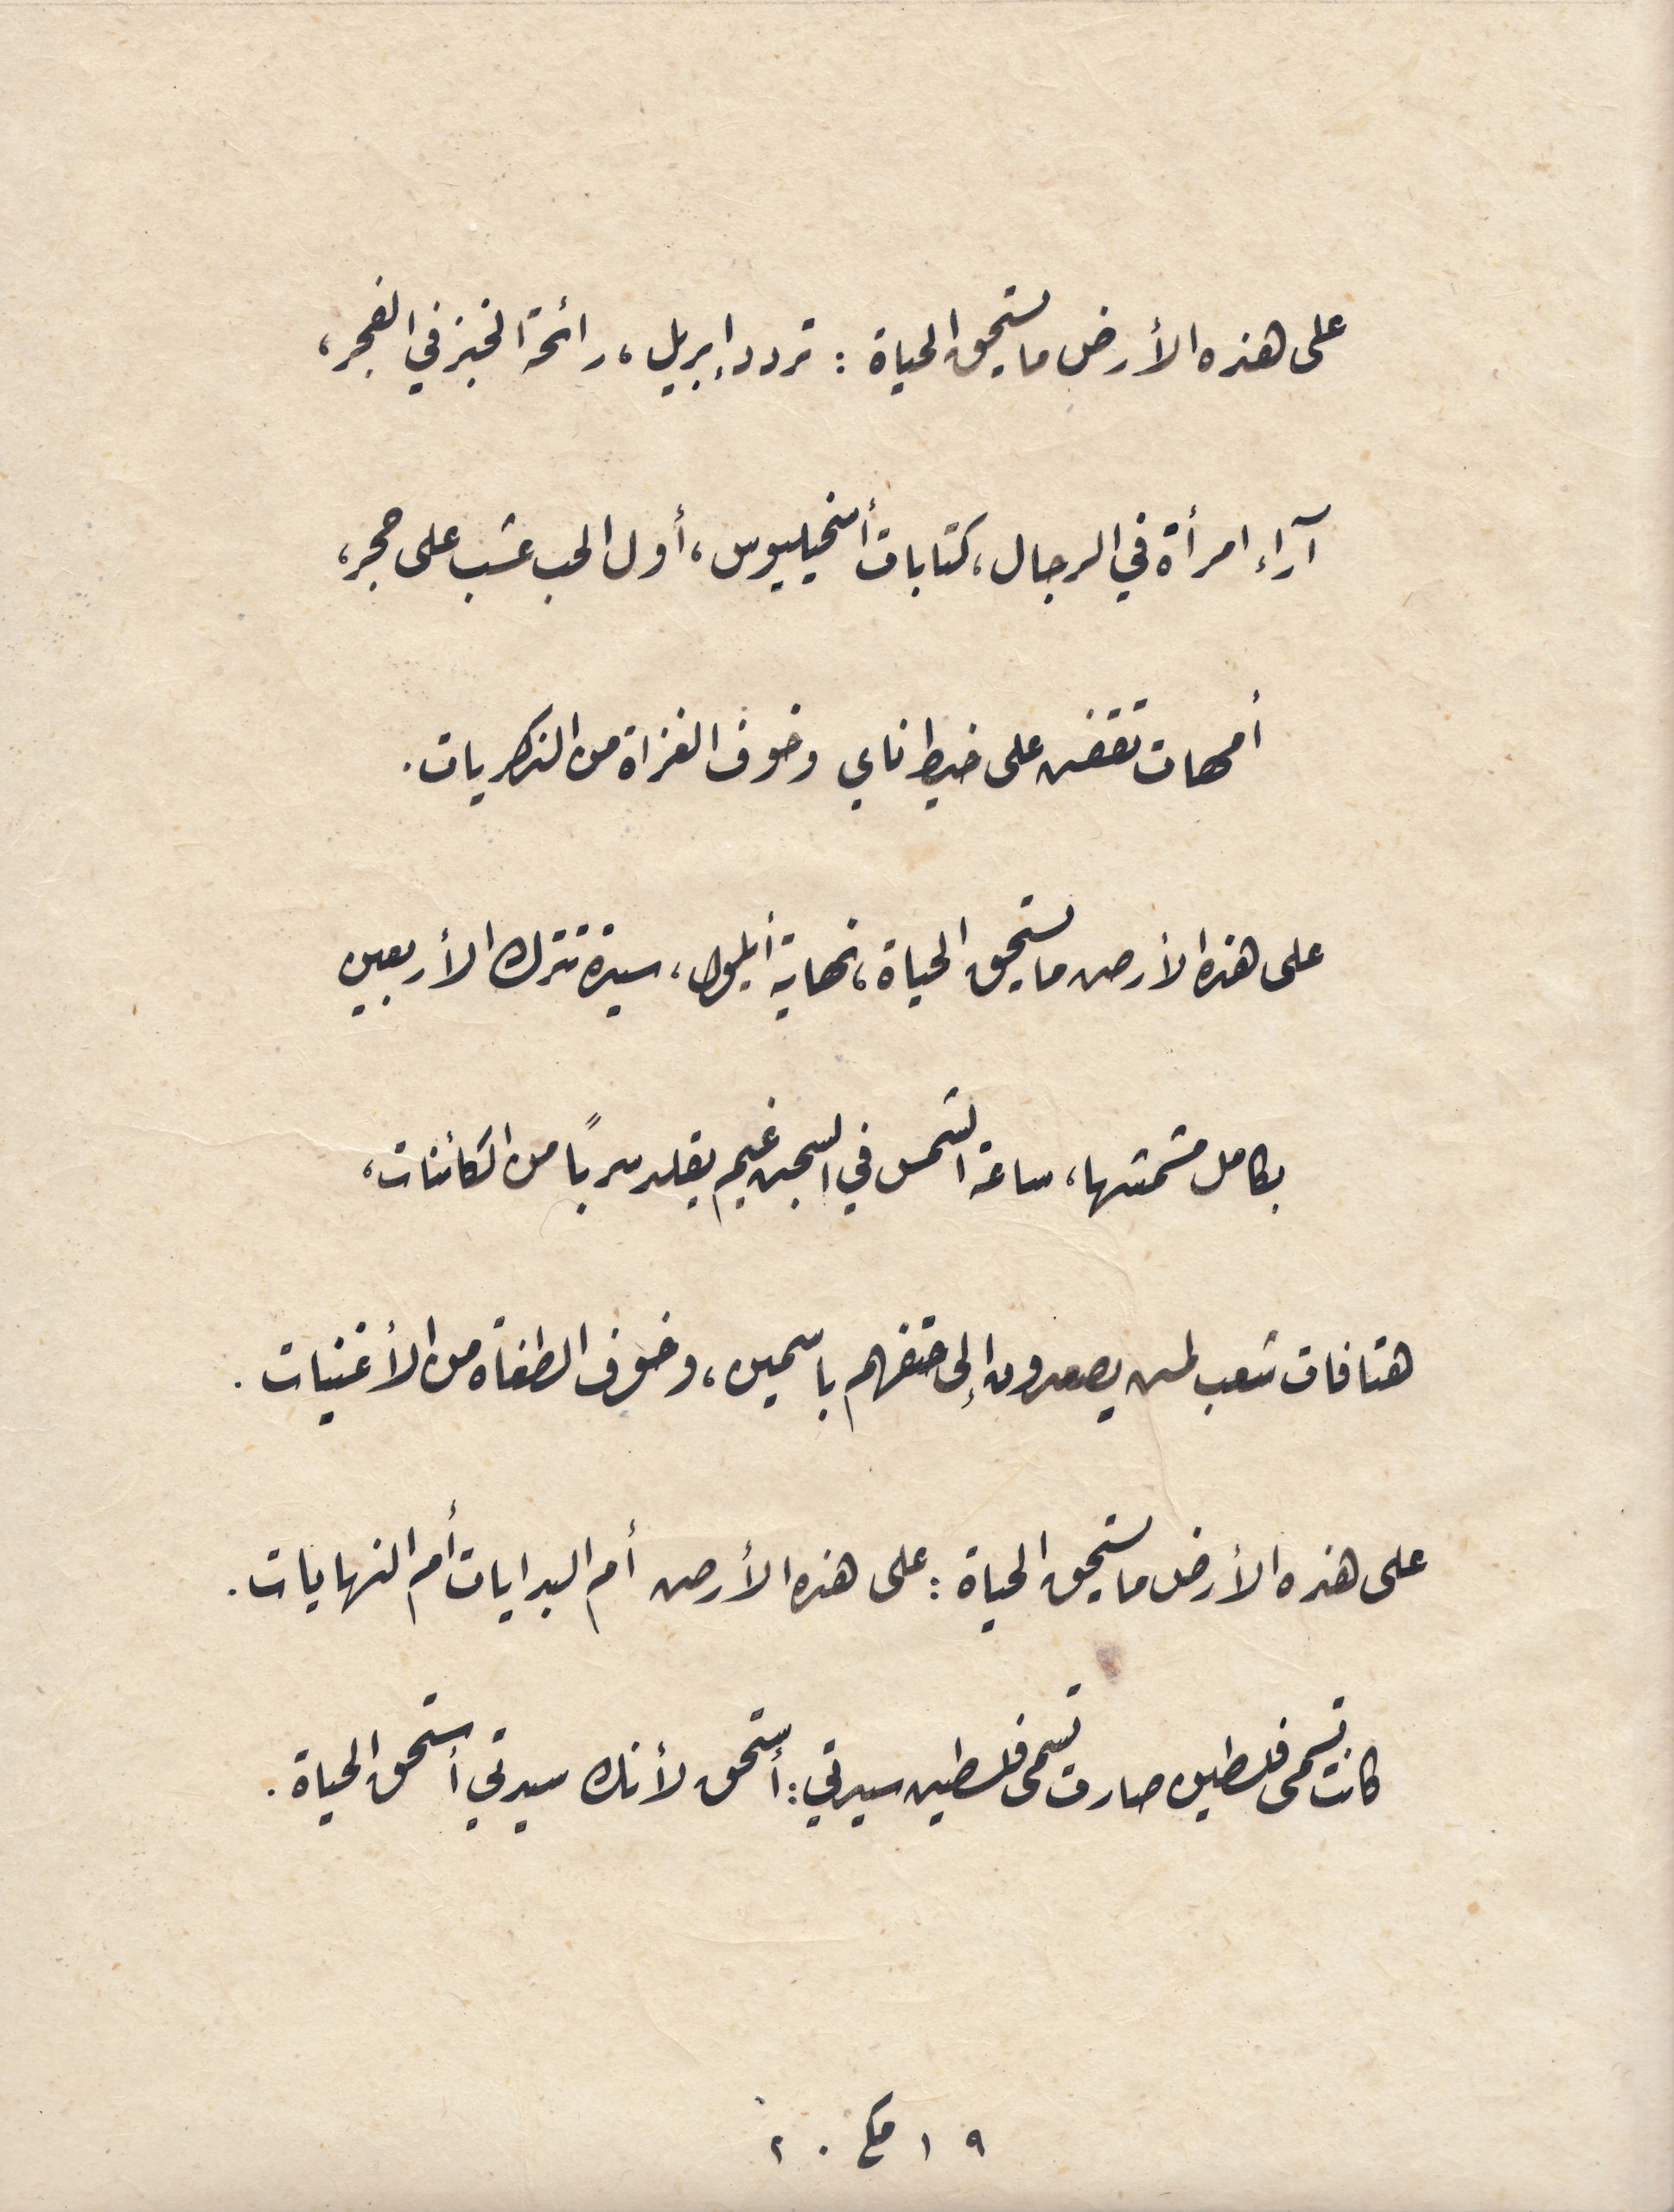 على هذه الأرض ما يستحق الحياة : تردد إبريل، رائحة الخبز في الفجر،
آراء امرأة في الرجال، كتابات أسخيليوس، أول الحب عشب على حجر،
أمهات تقفن على خيط ناي وخوف الغزاة من الذكريات.
على هذه الأرض ما يستحق الحياة، نهاية أيلول، سيدة تترك الأربعين
بكامل مشمشها، ساعة الشمس في السجن غيم يقلد سربًا من الكائنات،
هتافات شعب لمن يصعدون إلى حتفهم باسمين، وخوف الطغاة من الأغنيات .
على هذه الأرض ما يستحق الحياة : على هذه الأرض أم البدايات أم النهايات .
كانت تسمى فلسطين صارت تسمى فلسطين سيدتي : أستحق لأنك سيدتي أستحق الحياة .